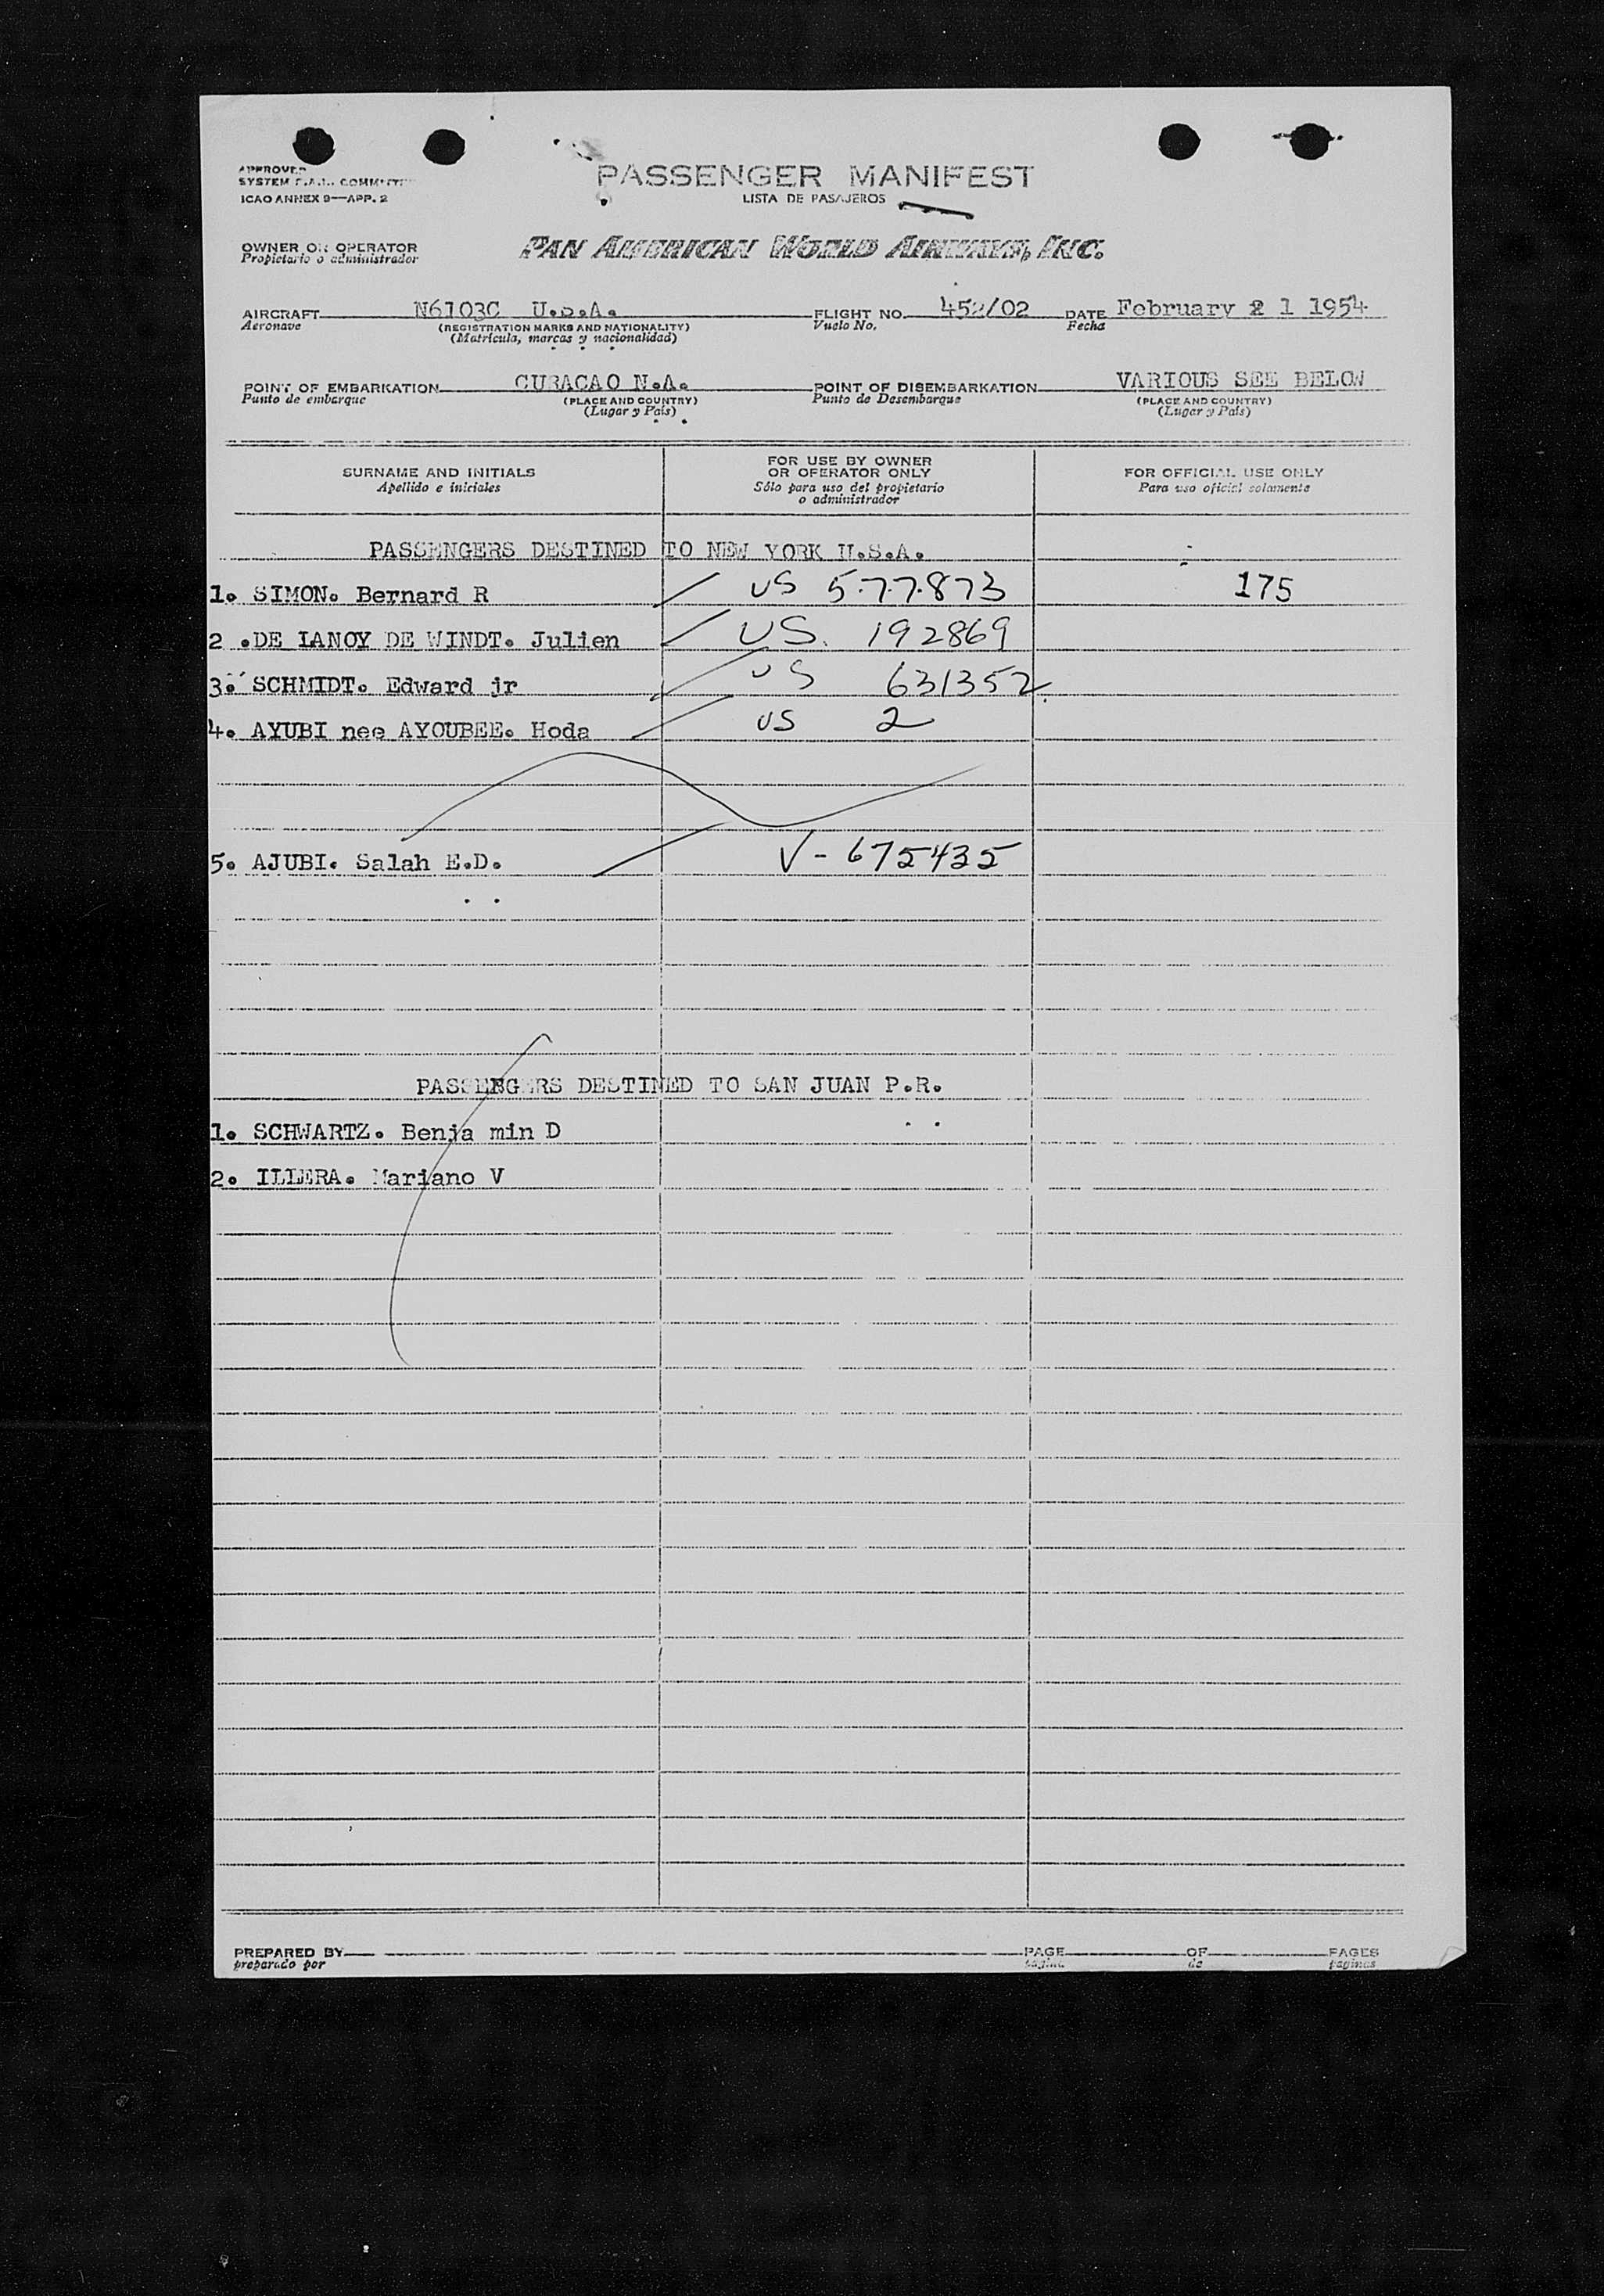 APPROVED
SYSTEM F.A.L. COMMITTEE
ICAO ANNEX 9—APP. 2
PASSENGER MANIFEST
LISTA DE PASAJEROS
OWNER OR OPERATOR
Propietario o administrador
PAN AMERICAN WORLD AIRWAYS, INC.
AIRCRAFT N6103C U.S.A. FLIGHT NO. 452/02 DATE February 21 1954
Aeronave (REGISTRATION MARKS AND NATIONALITY) Vuelo No. Fecha
(Matrícula, marcas y nacionalidad)
POINT OF EMBARKATION CURACAO N.A. POINT OF DISEMBARKATION VARIOUS SEE BELOW
Punto de embarque (PLACE AND COUNTRY) Punto de Desembarque (PLACE AND COUNTRY)
(Lugar y País) (Lugar y País)
SURNAME AND INITIALS
Apellido e iniciales
FOR USE BY OWNER
OR OPERATOR ONLY
Sólo para uso del propietario
o administrador
FOR OFFICIAL USE ONLY
Para uso oficial solamente
PASSENGERS DESTINED TO NEW YORK U.S.A.
1. SIMON. Bernard R US 5.77.873 175
2 .DE LANOY DE WINDT. Julien US. 192869
3. SCHMIDT. Edward jr US 631352
4. AYUBI nee AYOUBEE. Hoda US 2
5. AJUBI. Salah E.D. V-675435
PASSENGERS DESTINED TO SAN JUAN P.R.
1. SCHWARTZ. Benja min D
2. ILLERA. Mariano V
PREPARED BY PAGE OF PAGES
preparado por página de páginas